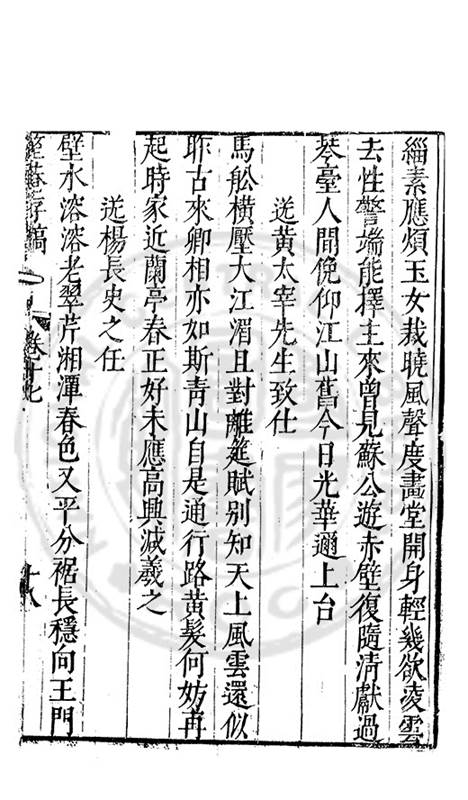 緇素應煩玉女裁曉風聲度畫堂開身輕幾欲凌雲
去性警端能擇主來曾見蘇公遊赤壁復隨清獻過
琴臺人間俛仰江山舊今日光華邇上台
送黃太宰先生致仕
馬舩橫壓大江湄且對離筵賦別知天上風雲還似
昨古來卿相亦如斯青山自是通行路黃髮何妨再
起時家近蘭亭春正好未應高興減羲之
送楊長史之任
壁水溶溶老翠芹湘潭春色又平分裾長穩向王門
存稿
卷十七
十八